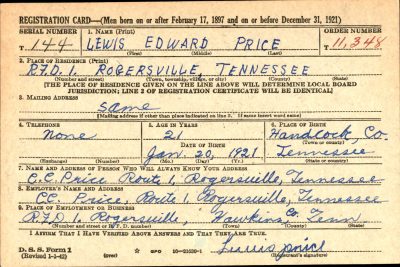 REGISTRATION CARD—(Men born on or after February 17, 1897 and on or before December 31, 1921)
SERIAL NUMBER 1. NAME (Print) ORDER NUMBER
T 144 LEWIS EDWARD PRICE T 11,348
(First) (Middle) (Last)
2. PLACE OF RESIDENCE (Print)
R.F.D. 1. ROGERSVILLE, TENNESSEE
(Number and street) (Town, township, village, or city) (County) (State)
[THE PLACE OF RESIDENCE GIVEN ON THE LINE ABOVE WILL DETERMINE LOCAL BOARD
JURISDICTION; LINE 2 OF REGISTRATION CERTIFICATE WILL BE IDENTICAL]
3. MAILING ADDRESS
Same
[Mailing address if other than place indicated on line 2. If same insert word same]
4. TELEPHONE 5. AGE IN YEARS 6. PLACE OF BIRTH
None 21 Handcock, Co.
DATE OF BIRTH (Town or county)
Jan. 20, 1921 Tennessee
(Exchange) (Number) (Mo.) (Day) (Yr.) (State or country)
7. NAME AND ADDRESS OF PERSON WHO WILL ALWAYS KNOW YOUR ADDRESS
C.C. Price, Route 1, Rogersville, Tennessee
8. EMPLOYER'S NAME AND ADDRESS
C.C. Price, Route, 1, Rogersville, Tennessee
9. PLACE OF EMPLOYMENT OR BUSINESS
R.F.D. 1. Rogersville, Hawkins Co. Tenn
(Number and street or R. F. D. number) (Town) (County) (State)
I AFFIRM THAT I HAVE VERIFIED ABOVE ANSWERS AND THAT THEY ARE TRUE.
D. S. S. Form 1
(Revised 1-1-42) GPO 16—21630-1 price
(Registrant's signature)